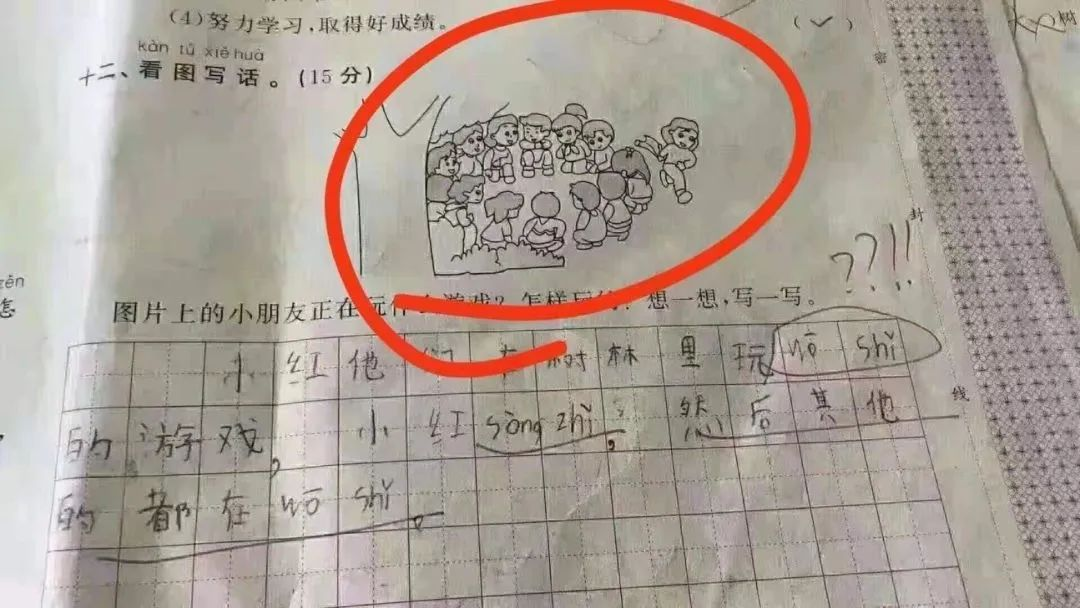 (4)努力学习,取得好成绩。 (✓)
树
kàn tú xiě huà
十二、看图写话。(15分)
密
封
??!!
图片上的小朋友正在玩什么游戏?怎样玩的?想一想,写一写。
小红他们在树林里玩wō shǐ
的游戏,小红sòng zhǐ,然后其他
线
的都在wō shǐ。